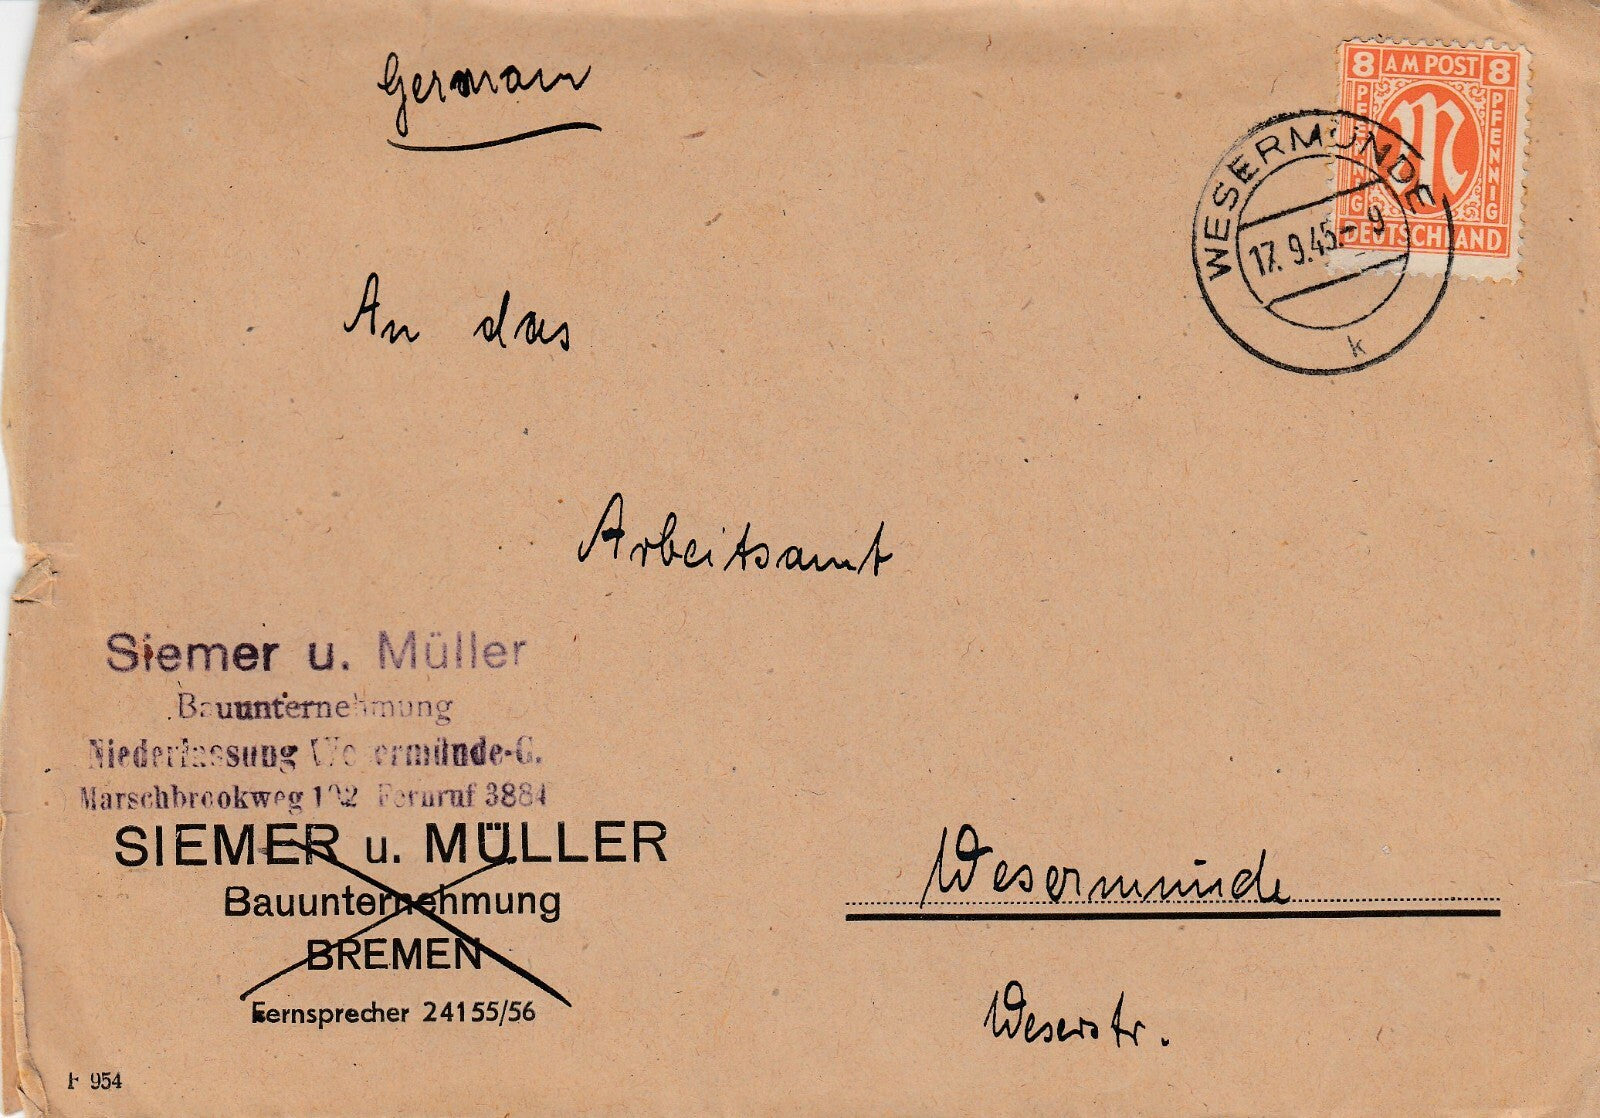 German
8 AM POST 8
PFENNIG
PFENNIG
DEUTSCHLAND
WESERMÜNDE
17.9.45.-9
k
An das
Arbeitsamt
Siemer u. Müller
Bauunternehmung
Niederlassung Wesermünde-G.
Marschbrookweg 102 Fernruf 3884
SIEMER u. MÜLLER
Bauunternehmung
BREMEN
Fernsprecher 24155/56
Wesermünde
Weserstr.
F 954